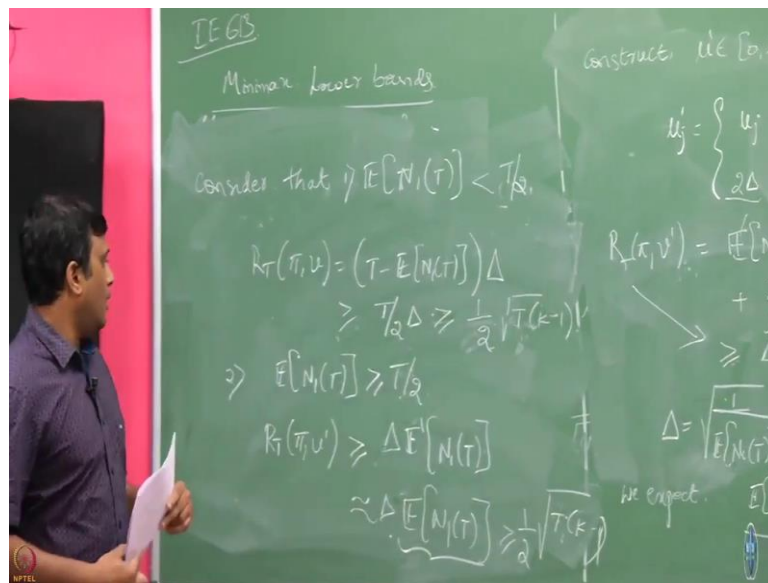 IE 613
Minimax Lower bounds
Consider that 1) E[N₁(T)] < T/2.
R_T(π,ν) = (T - E[N₁(T)])Δ
≥ T/2 Δ ≥ 1/2 √T(k-1)
2) E[N₁(T)] ≥ T/2
R_T(π,ν') ≥ Δ E'[N₁(T)]
≈ Δ E[N₁(T)] ≥ 1/2 √T(k-1)
Construct, u' ∈ [0,
u'j = { uj
2Δ
R_T(π,ν') = E'[N
+
≥
Δ = √ 1 / E[N₁(T)
We expect. E[
NPTEL